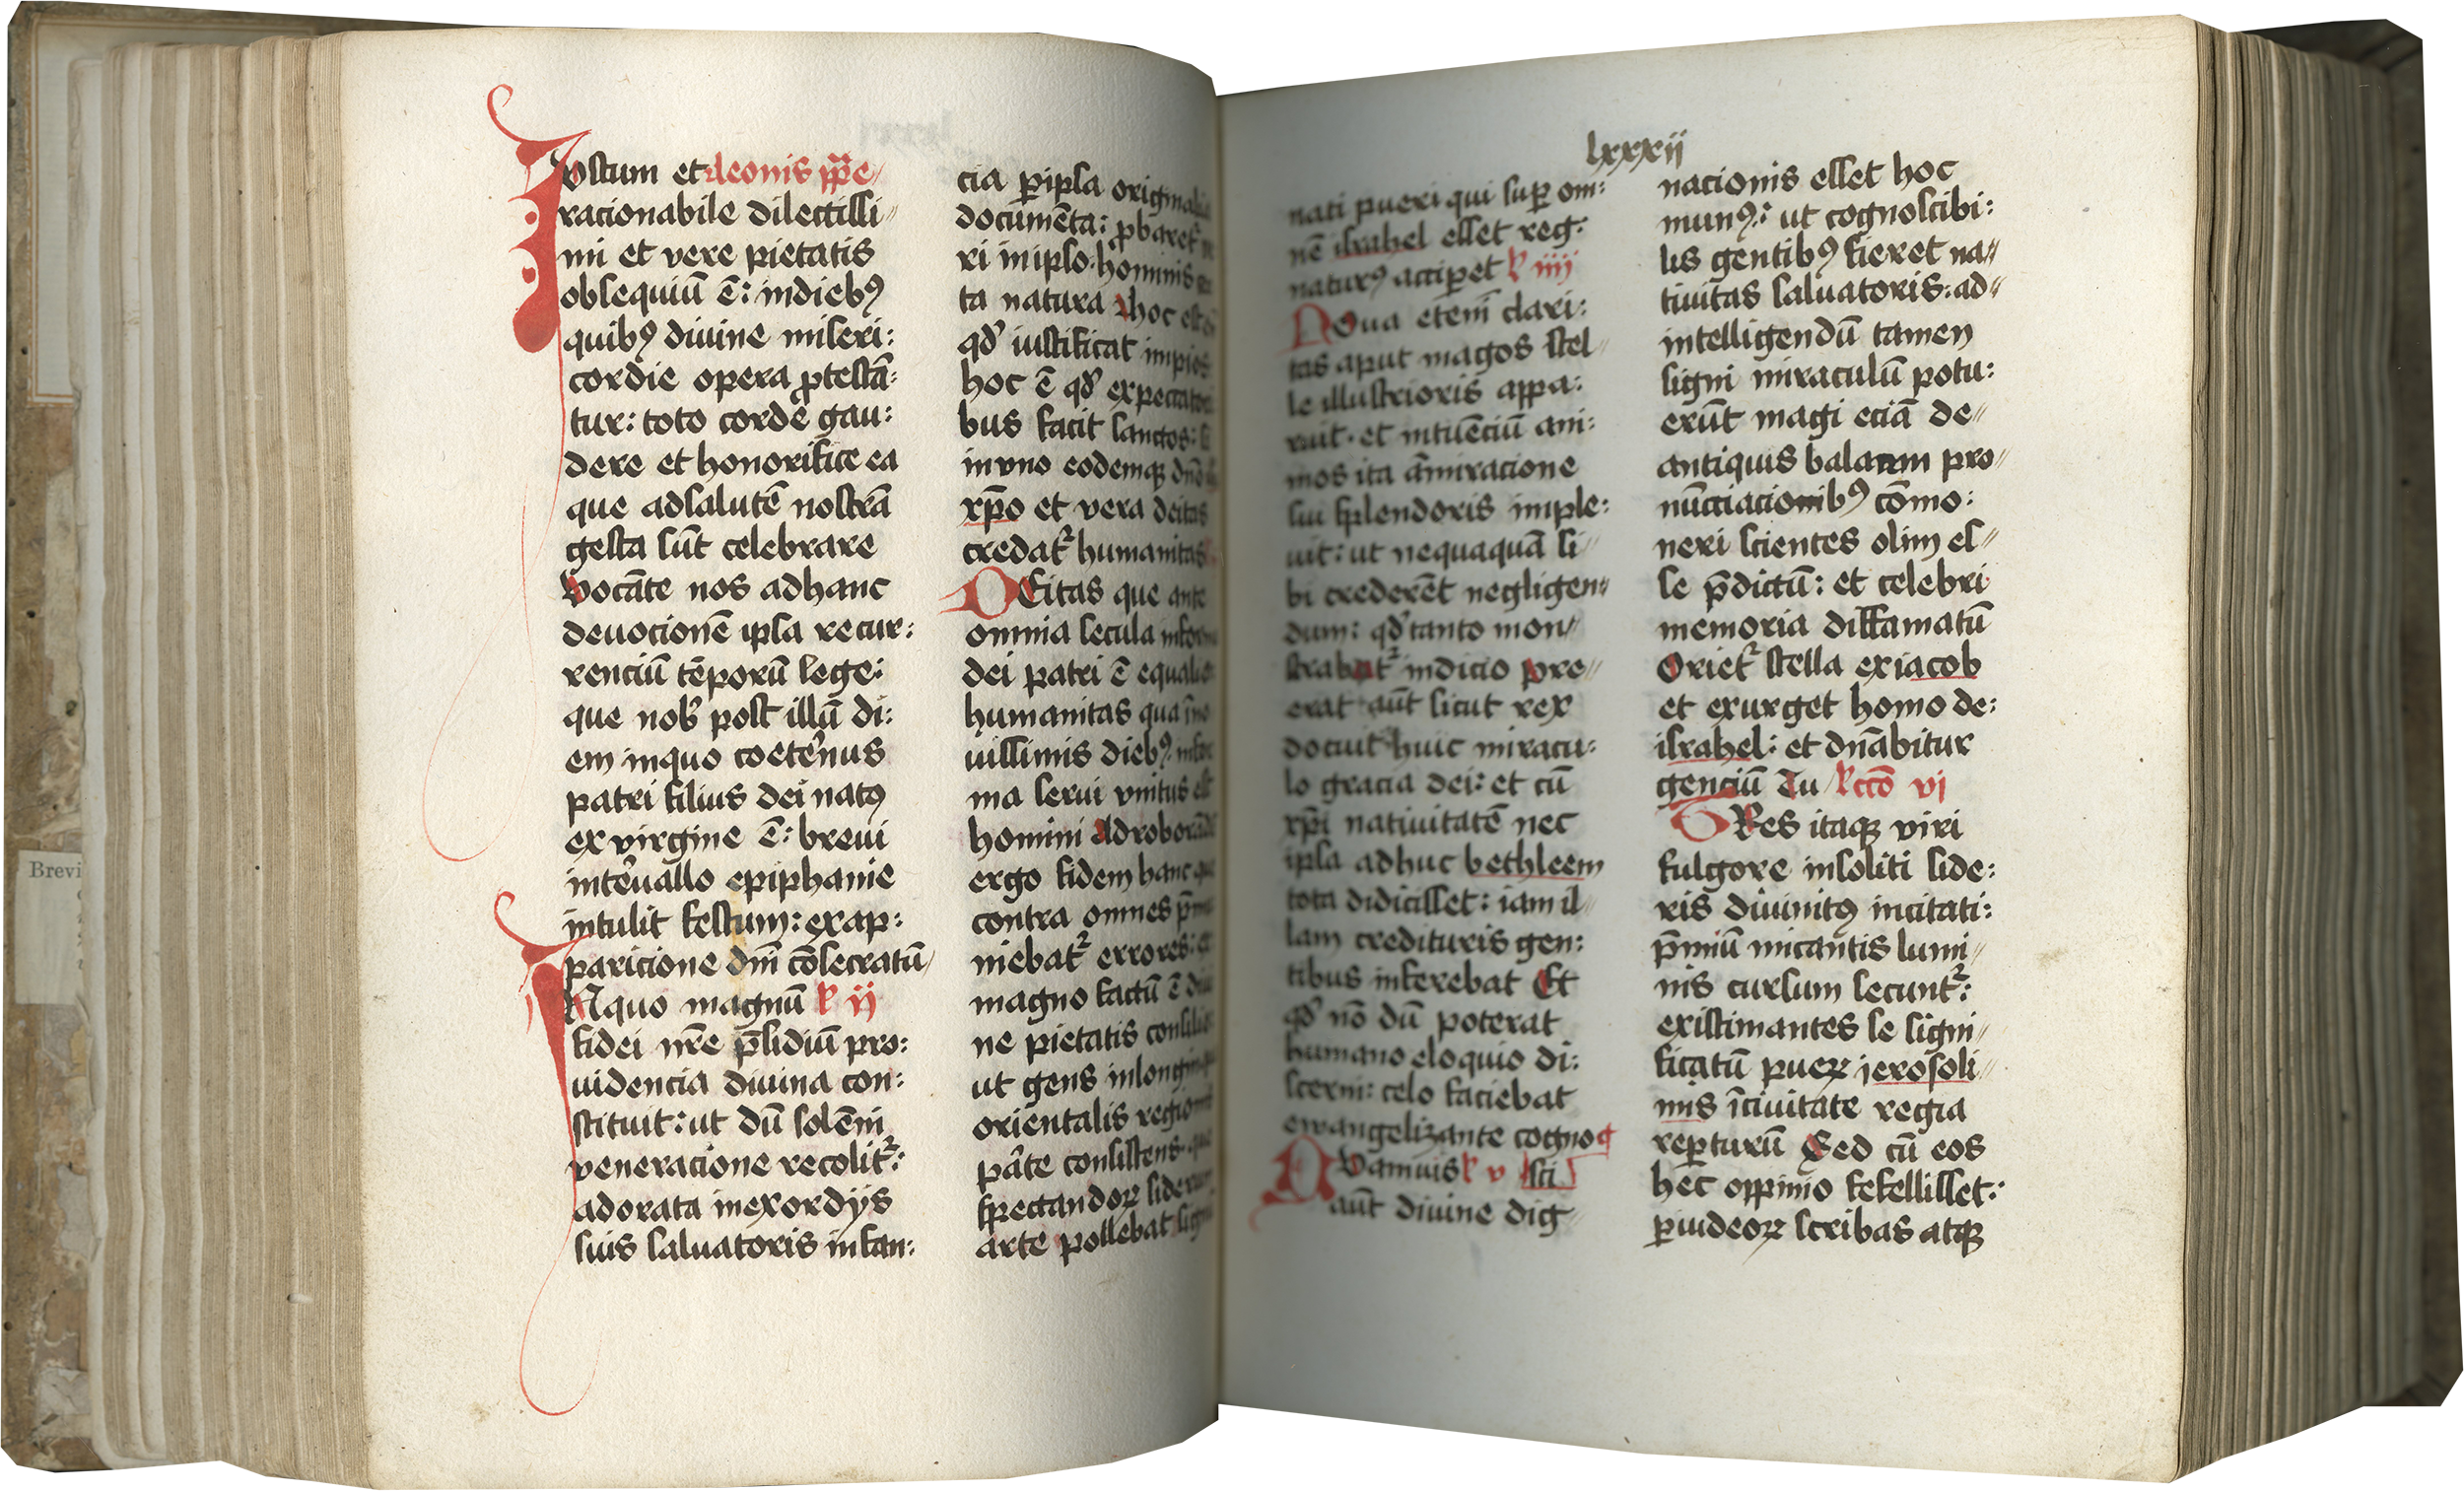 Iustum et leonis ppe
racionabile dilectissi〃
mi et vere pietatis
obsequiū ē: indiebꝰ
quibꝰ diuine miseri:
cordie opera ꝓtestā:
tur: toto corde gau:
dere et honorifice ea
que adsalutē nostrā
gesta sūt celebrare
vocāte nos adhanc
deuocionē ipsa recur:
renciū tēporū lege:
que nob̛ post illū di:
em inquo coet̛enus
patri filius dei natꝰ
ex virgine ē: breui
int̛euallo epiphanie
intulit festum: exap:
paricione dn̄i cōsecratū
INquo magnū ꝶ ij
fidei nr̄e p̄sidiū pro:
uidencia diuina con:
stituit: ut dū solēni
veneracione recolit᷑:
adorata inexordijs
suis saluatoris infan:
cia ꝑipsa original
documēta: ꝓbaret᷑
ri inipso hominis
ta natura hoc est
qd̛ iustificat impios
hoc ē qd̛ expectator
bus facit sanctos:
inuno eodemqꝫ dn̄o
xp̄o et vera deitas
credat᷑ humanitas
DEitas que ante
omnia secula infor
dei patri ē equalis
humanitas qua īno
uissimis diebꝰ infor
ma serui vnitus est
homini Adroborādā
ergo fidem hanc que
contra omnes p̄mu
niebat᷑ errores: ex
magno factū ē diui
ne pietatis consilio
ut gens inlonginqua
orientalis regionis
pa᷑te consistens que
spectandoꝝ siderum
arte pollebat signū
lxxxij
nati pueri qui suꝑ om:
nē israhel esset reg:
naturꝰ acciꝑet ꝶ iiij
NOua etem̄ clari:
tas aput magos stel〃
le illustrioris appa:
ruit. et intuēciū ani:
mos ita āmiracione
sui splendoris imple:
uit: ut nequaquā si〃
bi crederēt negligen〃
dum: qd̛ tanto mon〃
strabat᷑ indicio pre〃
erat aūt sicut rex
docuit huic miracu:
lo gracia dei: et cū
xp̄i natiuitatē nec
ipsa adhuc bethleem
tota didicisset: iam il〃
lam credituris gen:
tibus inferebat Et
qd̛ nō dū poterat
humano eloquio di:
scerni: celo faciebat
ewangelizante cogno
QVamuis ꝶ v sci
aūt diuine dig〃
nacionis esset hoc
munꝰ: ut cognoscibi:
lis gentibꝰ fieret na〃
tiuitas saluatoris: ad〃
intelligendū tamen
signi miraculū potu:
erūt magi eciā de〃
antiquis balaam pro〃
nūcciacionibꝰ cōmo:
neri scientes olim es〃
se p̄dictū: et celebri
memoria diffamatū
Oriet᷑ stella exiacob
et exurget homo de:
israhel: et dn̄abitur
genciū Tu lcc̄o vj
TRes itaqꝫ viri
fulgore insoliti side:
ris diuinitꝰ incitati:
p̄miū micantis lumi〃
nis cursum secunt᷑:
existimantes se signi〃
ficatū pueꝝ jerosoli〃
mis īciuitate regia
reꝑturū Sed cū eos
hec oppinio fefellisset:
ꝑiudeoꝝ scribas atqꝫ
Brevi